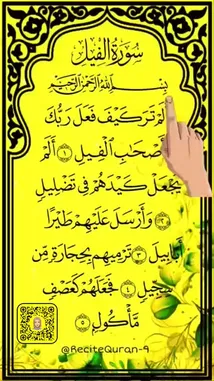 سُورَةُ الْفِيلِ
بِسْمِ اللَّهِ الرَّحْمَٰنِ الرَّحِيمِ
أَلَمْ تَرَ كَيْفَ فَعَلَ رَبُّكَ
بِأَصْحَابِ الْفِيلِ ١ أَلَمْ
يَجْعَلْ كَيْدَهُمْ فِي تَضْلِيلٍ
٢ وَأَرْسَلَ عَلَيْهِمْ طَيْرًا
أَبَابِيلَ ٣ تَرْمِيهِم بِحِجَارَةٍ مِّن
سِجِّيلٍ ٤ فَجَعَلَهُمْ كَعَصْفٍ
مَّأْكُولٍ ٥
@ReciteQuran-9